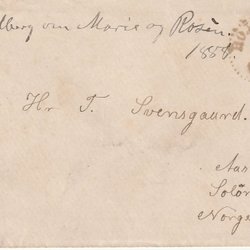 lberg om Marie og Rosén.
1888.
Hr T. Svensgaard.
Aas
Solør
Norge